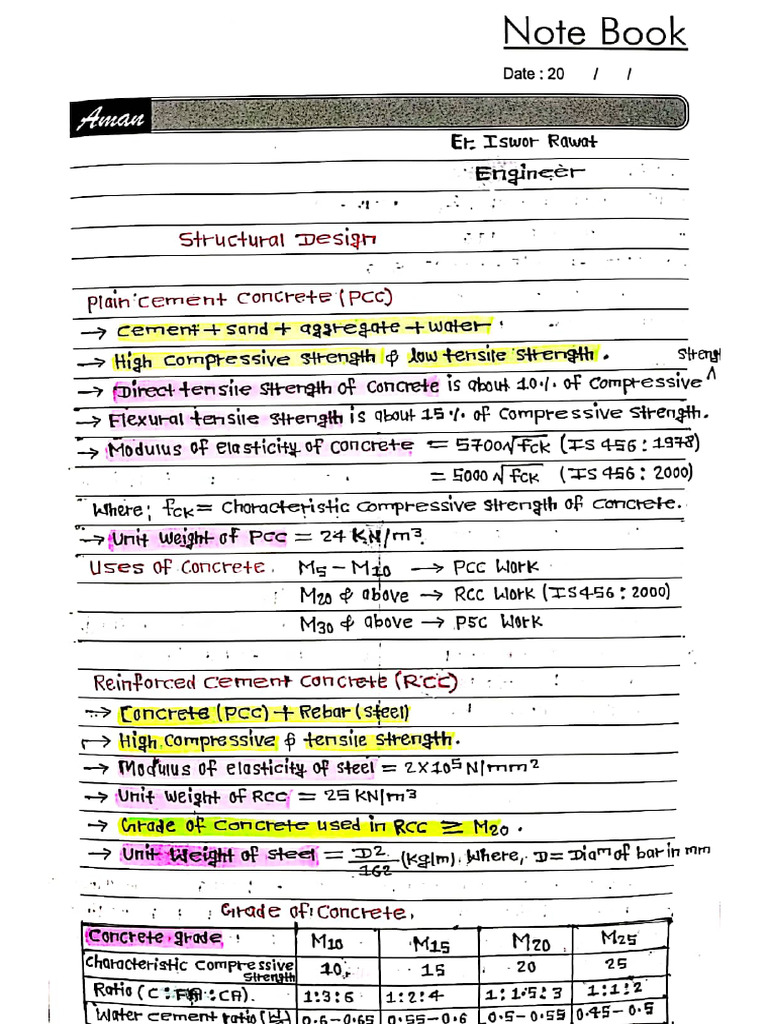 Note Book
Date : 20 / /
Aman
Er. Iswor Rawat
Engineer
Structural Design
Plain cement concrete (PCC)
→ cement + sand + aggregate + water.
→ High compressive strength & low tensile strength.
→ Direct tensile strength of concrete is about 10% of compressive ^ strengt
→ Flexural tensile strength is about 15% of compressive strength.
→ Modulus of elasticity of concrete = 5700√fck (IS 456 : 1978)
= 5000√fck (IS 456 : 2000)
Where; fck = characteristic compressive strength of concrete.
→ Unit weight of PCC = 24 KN/m³.
Uses of concrete. M5 – M10 → PCC work
M20 & above → RCC work (IS 456 : 2000)
M30 & above → PSC work
Reinforced cement concrete (RCC)
→ Concrete (PCC) + Rebar (steel)
→ High compressive & tensile strength.
→ Modulus of elasticity of steel = 2×10⁵ N/mm²
→ Unit weight of RCC = 25 KN/m³
→ Grade of concrete used in RCC ≥ M20.
→ Unit weight of steel = D²/162 (Kg/m). Where, D = Diaᵐ of bar in mm
Grade of concrete.
Concrete grade M10 M15 M20 M25
characteristic compressive strength 10 15 20 25
Ratio (C : FA : CA). 1:3:6 1:2:4 1:1.5:3 1:1:2
Water cement ratio 0.6-0.65 0.55-0.6 0.5-0.55 0.45-0.5